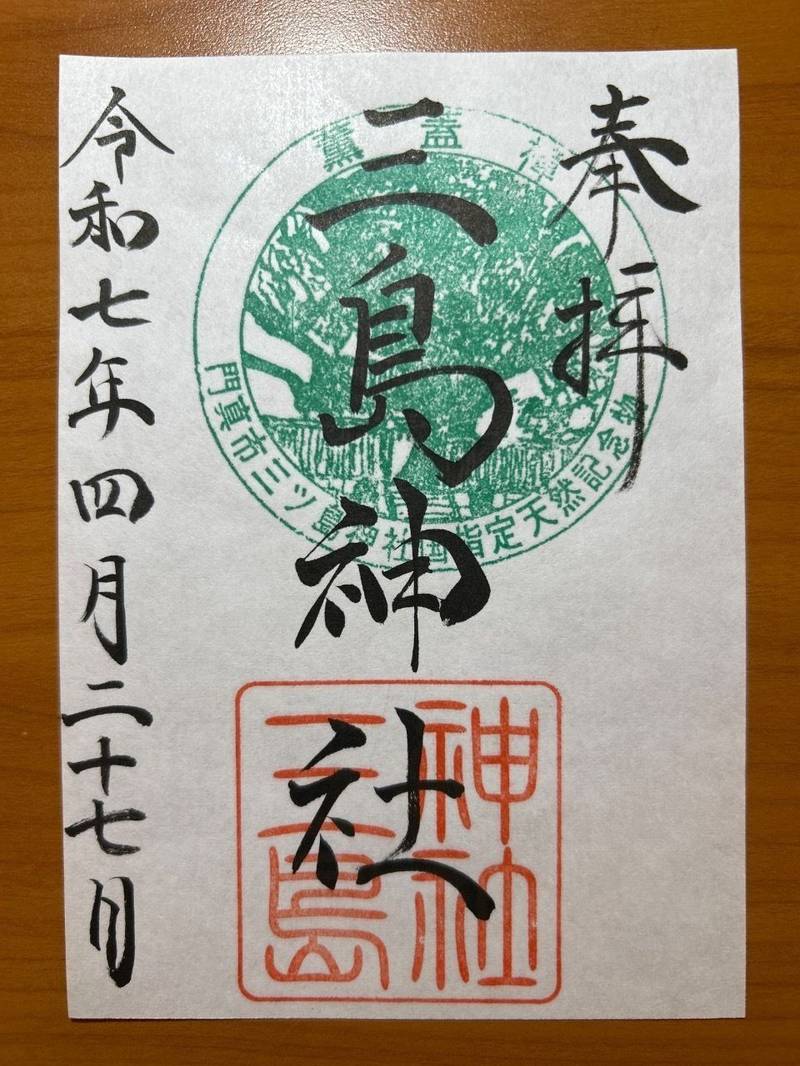 奉拝
三島神社
令和七年四月二十七日
薫蓋樟
門真市三ツ島神社国指定天然記念物
三島
神社